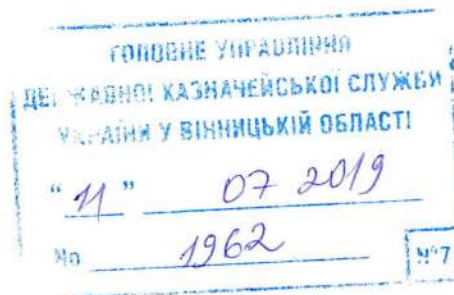 ГОЛОВНЕ УПРАВЛІННЯ
ДЕРЖАВНОЇ КАЗНАЧЕЙСЬКОЇ СЛУЖБИ
УКРАЇНИ У ВІННИЦЬКІЙ ОБЛАСТІ
"11" 07 2019
№ 1962
№7